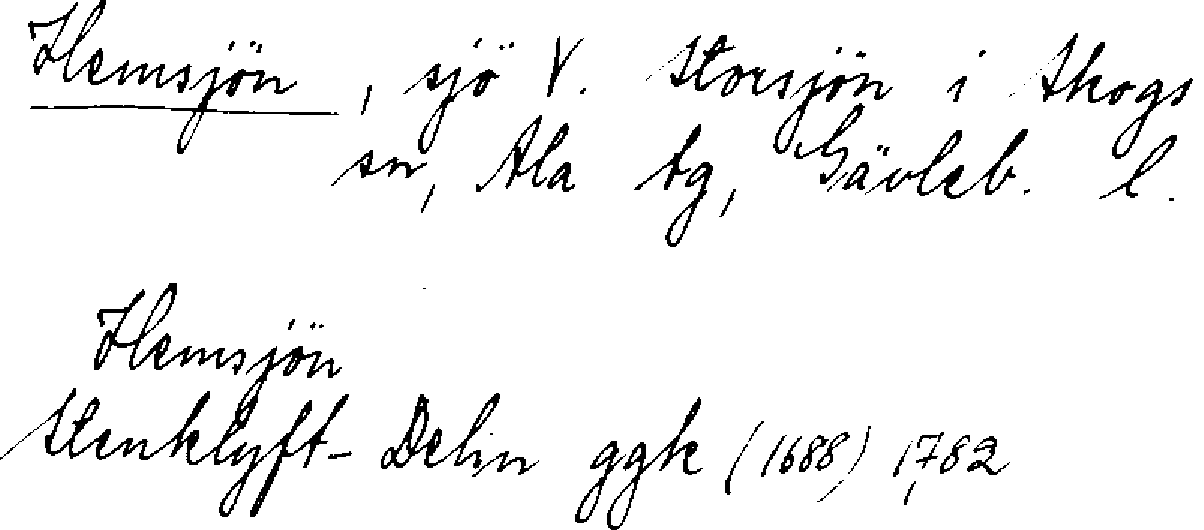 Hemsjön, sjö V. Storsjön i Skogs
sn, Ala tg, Gävleb. l.
Hemsjön
Stenklyft- Delin ggk (1688) 1782